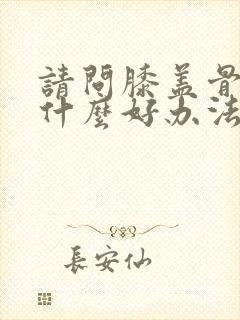 請問膝盖骨
什麼好办法
長安仙